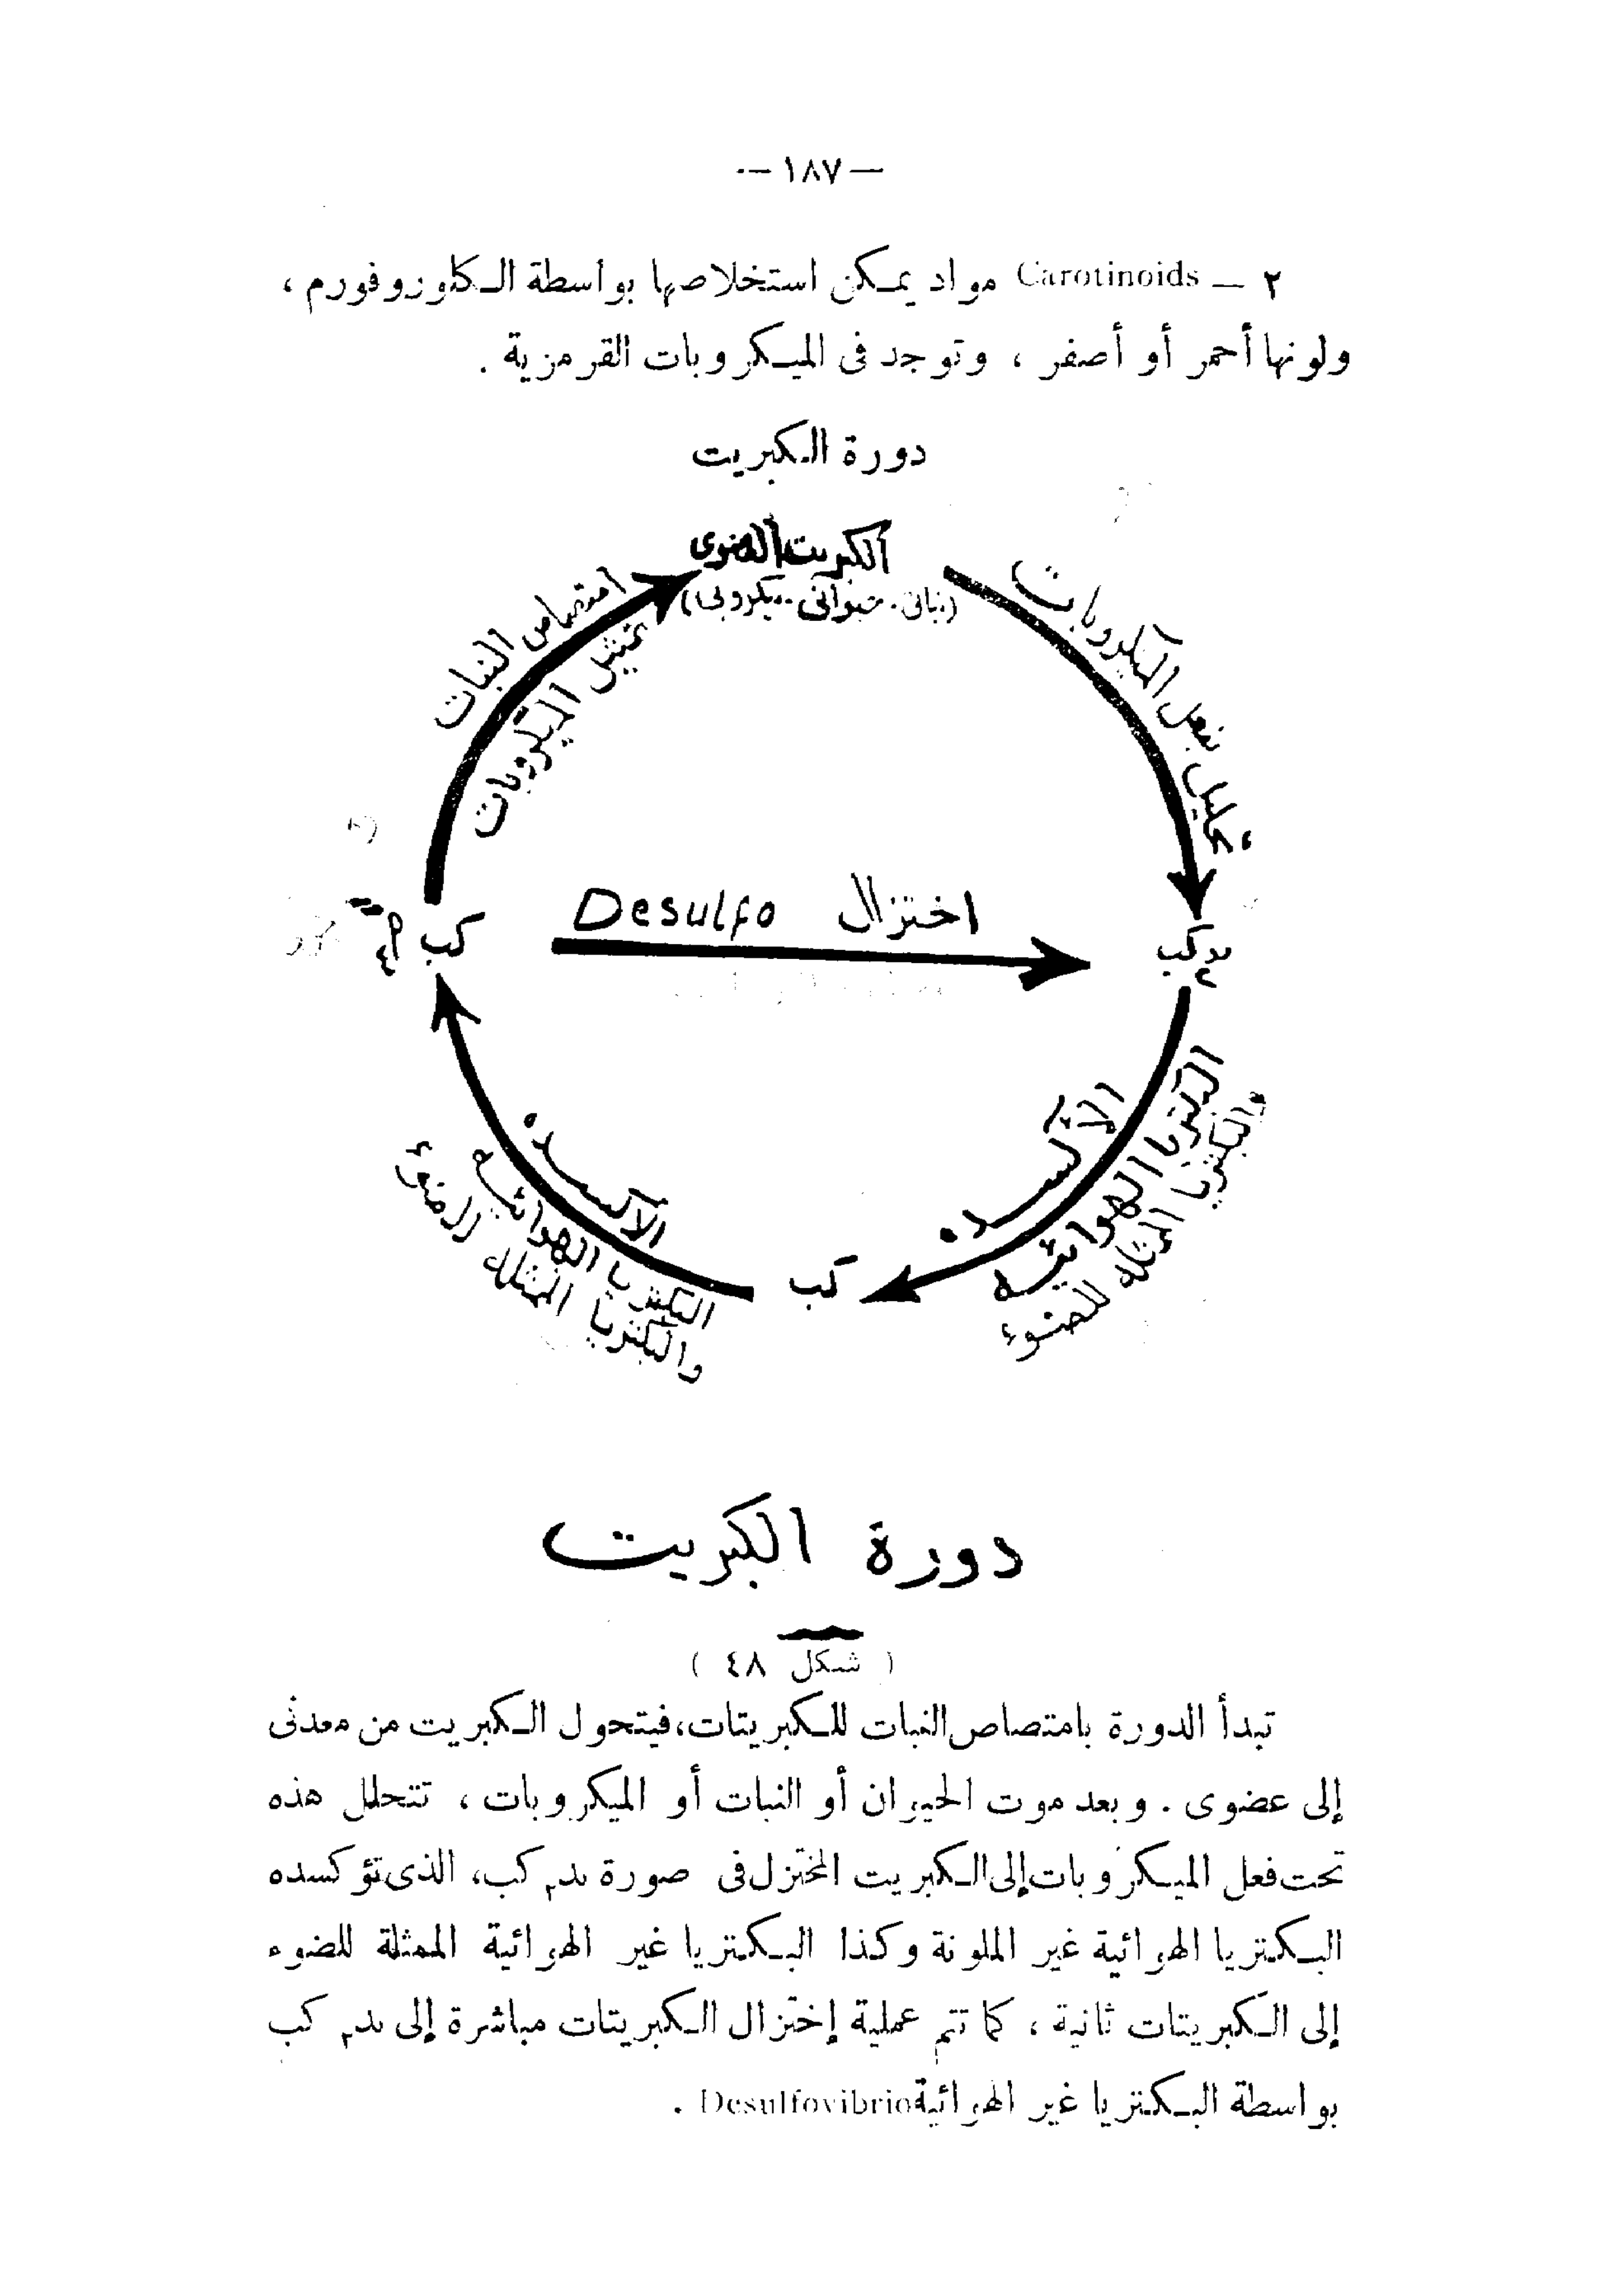 — ١٨٧ —
٢ — Carotinoids مواد يمكن استخلاصها بواسطة الكلوروفورم ،
ولونها أحمر أو أصفر ، وتوجد فى الميكروبات القرمزية .
دورة الكبريت
الكبريت العضوى
(نباتى . حيوانى . ميكروبى)
امتصاص النبات
تمثيل الميكروبات
تحليل بفعل الميكروبات
اختزال Desulfo
كب أ٤=
يد٢ كب
الأكسده
البكتريا الهوائيه
والبكتريا الممثله للضوء
كب
الأكسده
البكتريا الهوائيه
والبكتريا الممثله للضوء
دورة الكبريت
( شكل ٤٨ )
تبدأ الدورة بامتصاص النبات للكبريتات، فيتحول الكبريت من معدنى
إلى عضوى . وبعد موت الحيوان أو النبات أو الميكروبات ، تتحلل هذه
تحت فعل الميكروبات إلى الكبريت المختزل فى صورة يد٢ كب، الذى تؤكسده
البكتريا الهوائية غير الملونة وكذا البكتريا غير الهوائية الممثلة للضوء
إلى الكبريتات ثانية ، كما تتم عملية إختزال الكبريتات مباشرة إلى يد٢ كب
بواسطة البكتريا غير الهوائية Desulfovibrio .